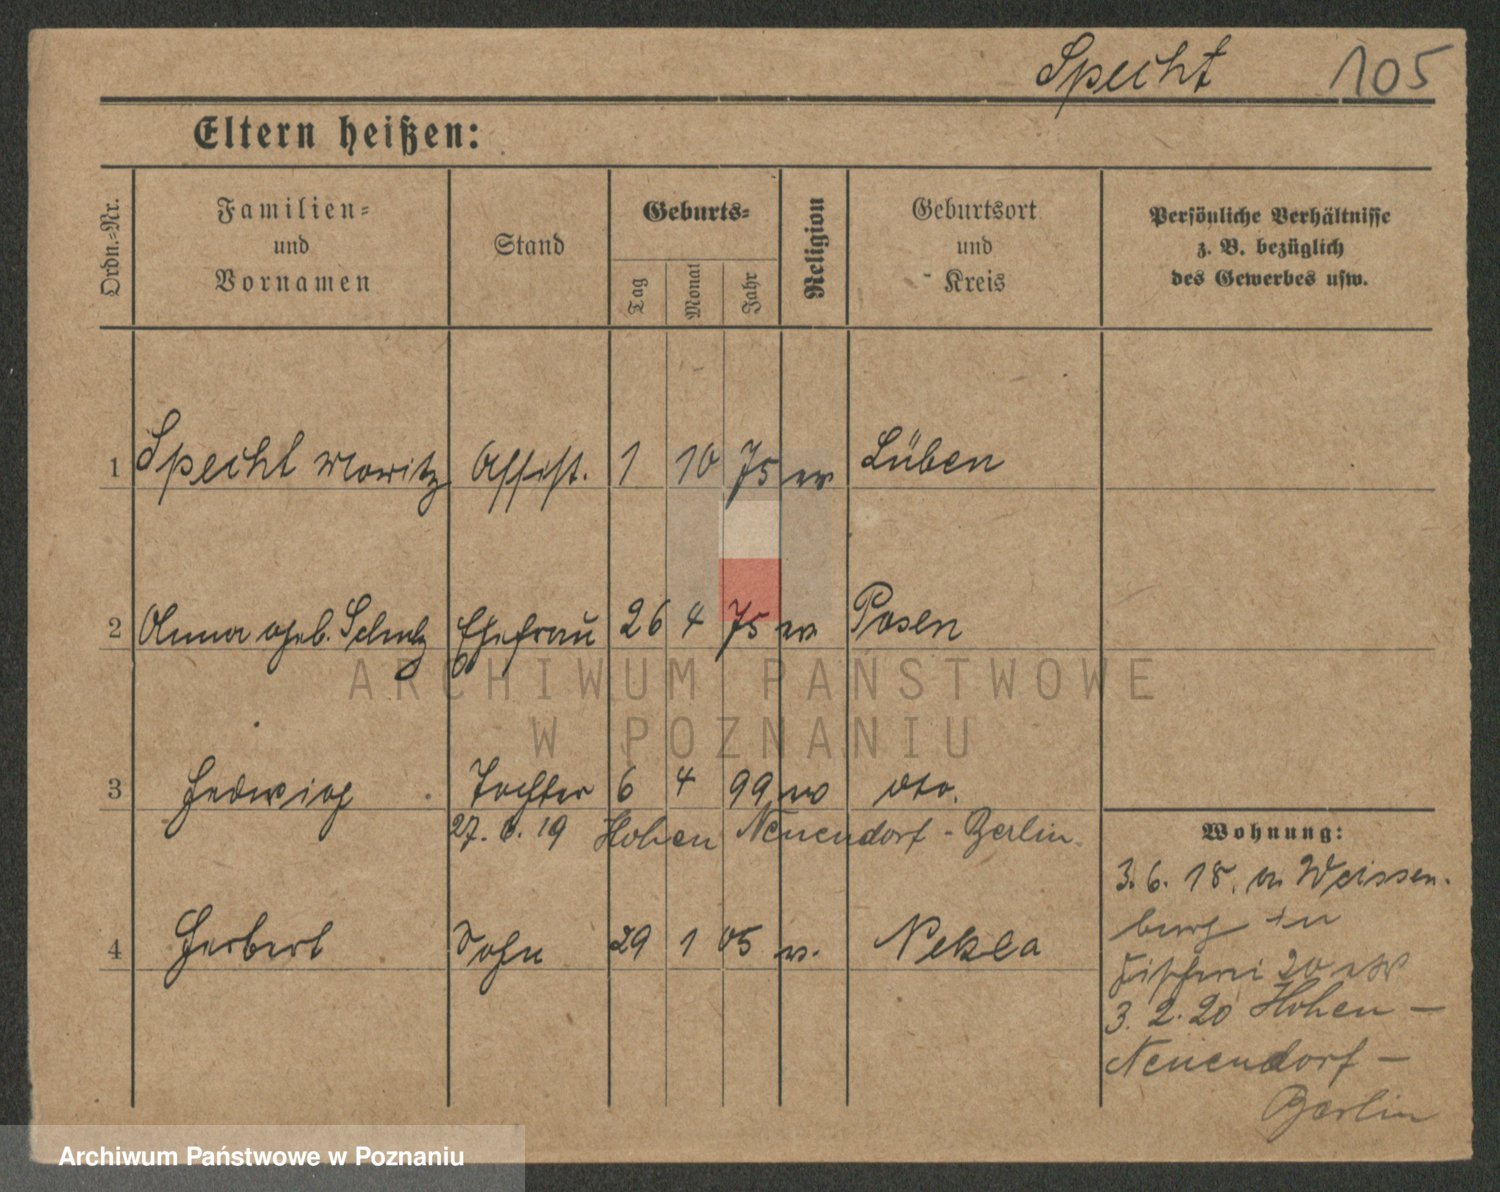 Specht 105
Eltern heißen:
Ordn.-Nr.
Familien-
und
Vornamen
Stand
Geburts-
Tag
Monat
Jahr
Religion
Geburtsort
und
Kreis
Persönliche Verhältnisse
z. B. bezüglich
des Gewerbes usw.
1 Specht Moritz Assist. 1 10 75 ev Lüben
2 Anna geb. Schulz Ehefrau 26 4 75 ev Posen
ARCHIWUM PAŃSTWOWE
W POZNANIU
3 Hedwig Tochter 6 4 99 ev dto.
27. 6. 19 Hohen Neuendorf - Berlin.
4 Herbert Sohn 29 1 05 ev. Nekla
Wohnung:
3. 6. 18. Weissen-
burg in
20
3. 2. 20 Hohen -
Neuendorf -
Berlin
Archiwum Państwowe w Poznaniu